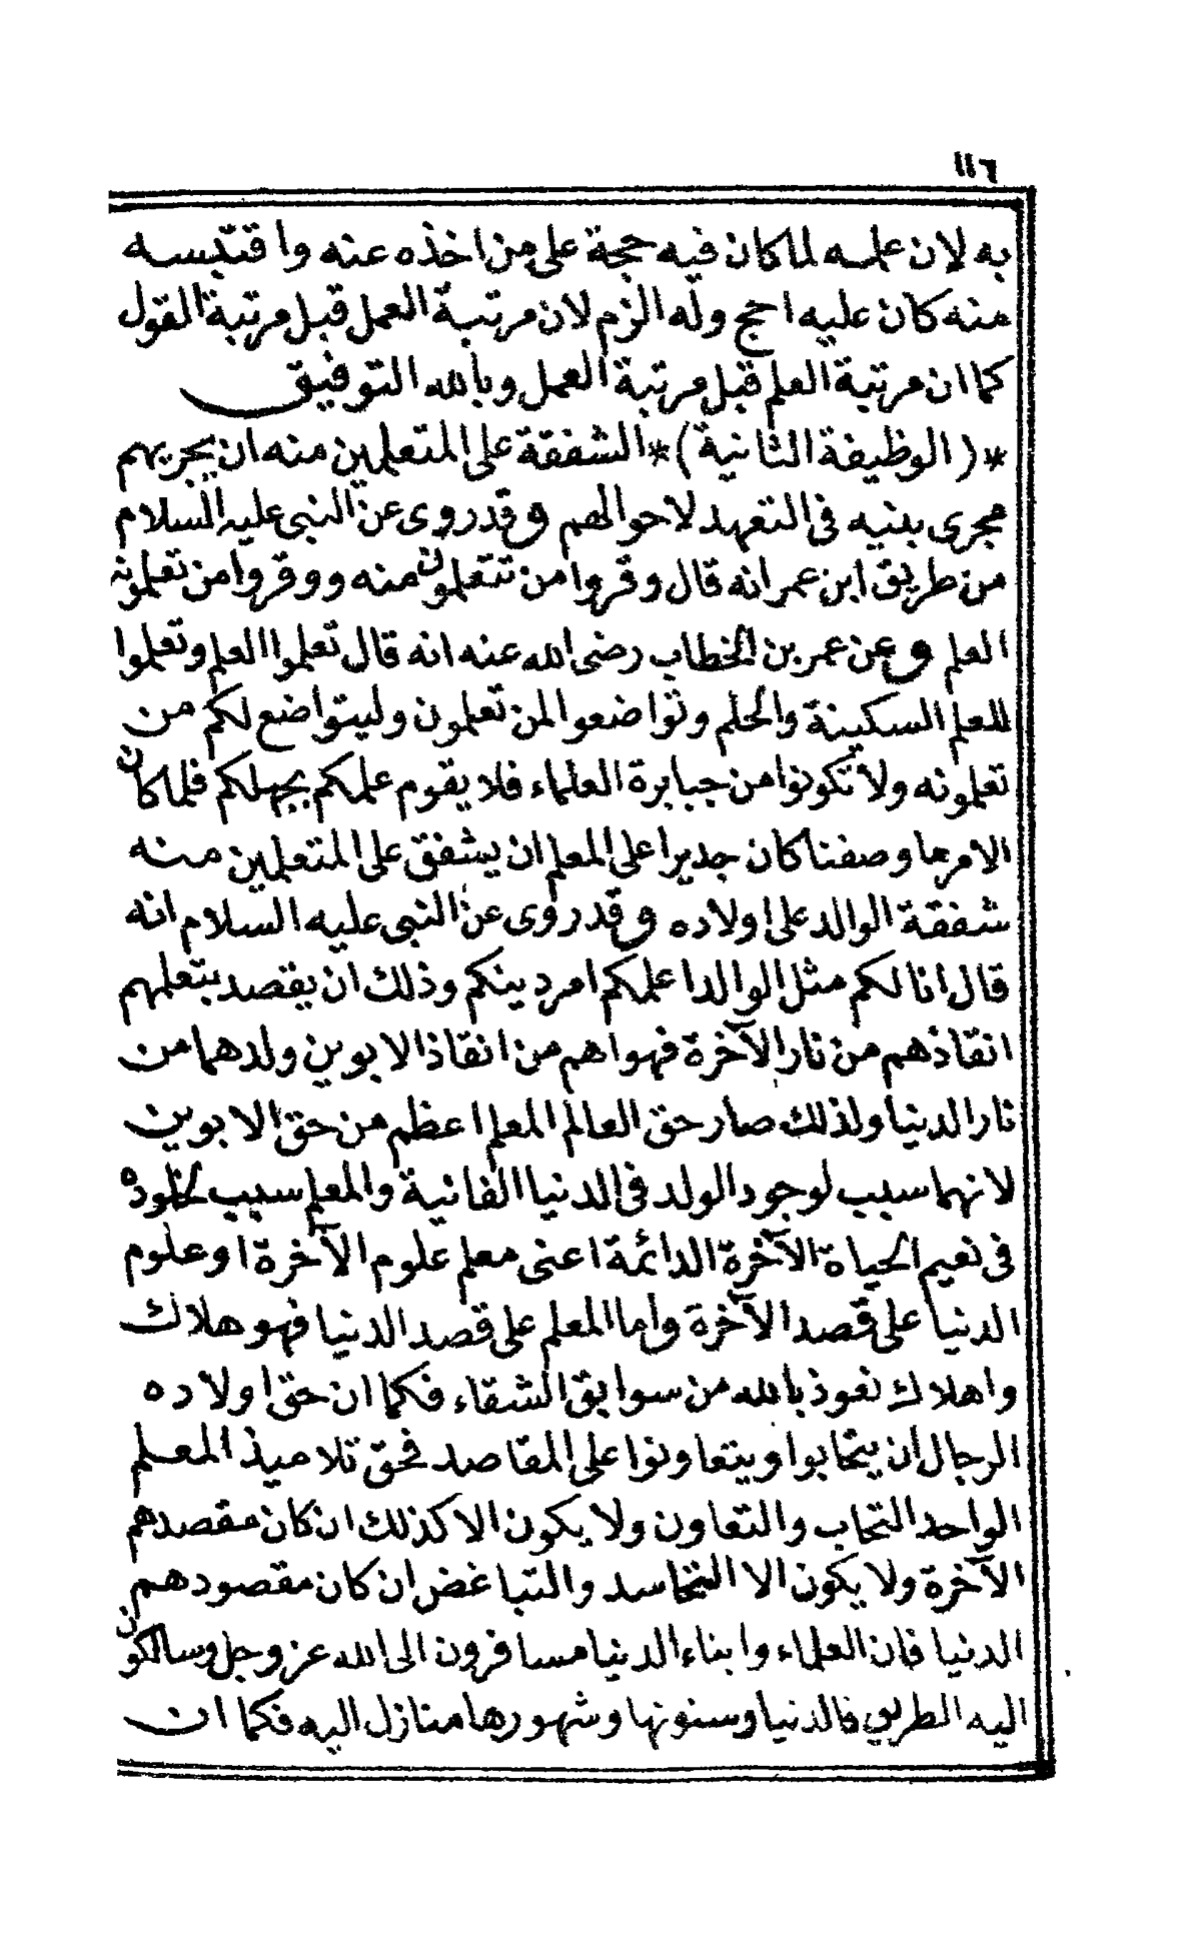 ١١٦
به لان علمه لما كان فيه حجة على من اخذه عنه واقتبسه
منه كان عليه احج وله الزم لان مرتبة العمل قبل مرتبة القول
كما ان مرتبة العلم قبل مرتبة العمل وبالله التوفيق
*(الوظيفة الثانية)* الشفقة على المتعلمين منه ان يجريهم
مجرى بنيه فى التعهد لاحوالهم وقد روى عن النبى عليه السلام
من طريق ابن عمر انه قال وقروا من تتعلمون منه ووقروا من تعلمونه
العلم وعن عمر بن الخطاب رضى الله عنه انه قال تعلموا العلم وتعلموا
للعلم السكينة والحلم وتواضعوا لمن تعلمون وليتواضع لكم من
تعلمونه ولا تكونوا من جبابرة العلماء فلا يقوم علمكم بجهلكم فلما كان
الامر بما وصفنا كان جديرا على المعلم ان يشفق على المتعلمين منه
شفقة الوالد على اولاده وقد روى عن النبى عليه السلام انه
قال انا لكم مثل الوالد اعلمكم امر دينكم وذلك ان يقصد بتعلمهم
انقاذهم من نار الآخرة فهو اهم من انقاذ الابوين ولدهما من
نار الدنيا ولذلك صار حق العالم المعلم اعظم من حق الابوين
لانهما سبب لوجود الولد فى الدنيا الفانية والمعلم سبب لخلوده
فى نعيم الحياة الآخرة الدائمة اعنى معلم علوم الآخرة او علوم
الدنيا على قصد الآخرة واما المعلم على قصد الدنيا فهو هلاك
واهلاك نعوذ بالله من سوابق الشقاء فكما ان حق اولاده
الرجال ان يتحابوا ويتعاونوا على المقاصد فحق تلاميذ المعلم
الواحد التحاب والتعاون ولا يكون الا كذلك ان كان مقصدهم
الآخرة ولا يكون الا التحاسد والتباغض ان كان مقصودهم
الدنيا فان العلماء وابناء الدنيا مسافرون الى الله عز وجل وسالكون
اليه الطريق فالدنيا وسنونها وشهورها منازل اليه فكما ان